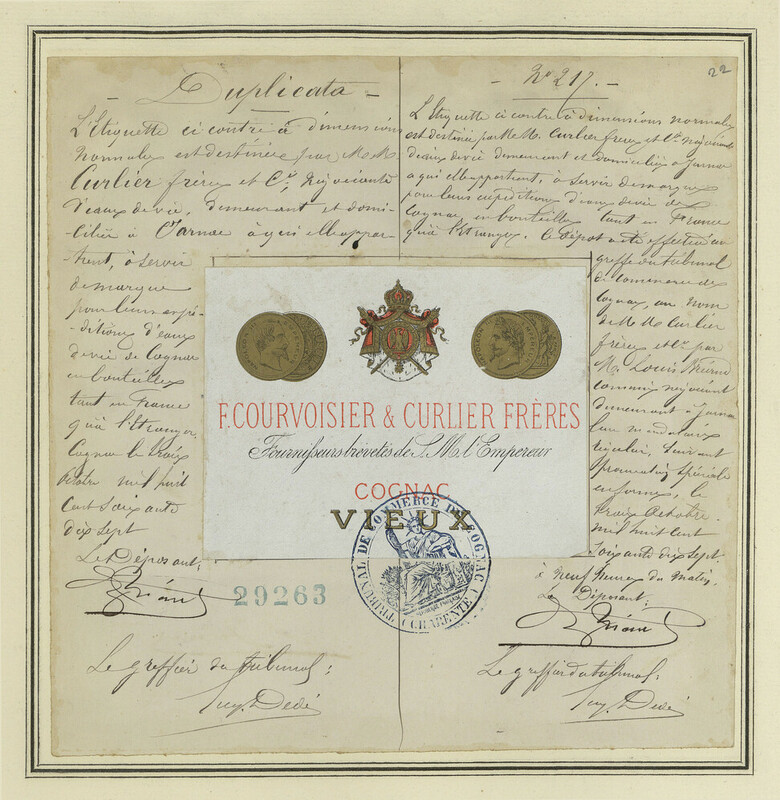 Duplicata
L'Etiquette ci contre à dimensions
normales est destinée par M.M.
Curlier frères et Cie, Négociants
d'eaux de vie, demeurant et domi-
ciliés à Jarnac à qui elle appar-
tient, à servir
de marque
pour leurs expé-
ditions d'eaux
de vie de Cognac
en bouteilles
tant en France
qu'à l'étranger
Cognac le trois
octobre mil huit
cent soixante
dix sept
Le Déposant:
29263
Le greffier du tribunal:
No 217.
22
L'Etiquette ci contre à dimensions normales
est destinée par M.M. Curlier frères et Cie, Négociants
d'eaux de vie demeurant et domiciliés à Jarnac
à qui elle appartient, à servir de marque
pour leurs expéditions d'eaux de vie de
Cognac, en bouteilles tant en France
qu'à l'étranger. Ce dépôt a été effectué au
greffe du tribunal
de commerce de
Cognac, au nom
de M.M. Curlier
frères et Cie par
M. Louis
commis négociant
demeurant à Jarnac
leur mandataire
suivant
procuration spéciale
en forme, le
trois octobre
mil huit cent
soixante dix sept
à neuf heures du matin.
Le Déposant:
Le greffier du tribunal:
NAPOLEON III EMPEREUR
NAPOLEON III EMPEREUR
F. COURVOISIER & CURLIER FRÈRES
Fournisseurs brevetés de S. M. l'Empereur
COGNAC
VIEUX
TRIBUNAL DE COMMERCE DE COGNAC
(CHARENTE)